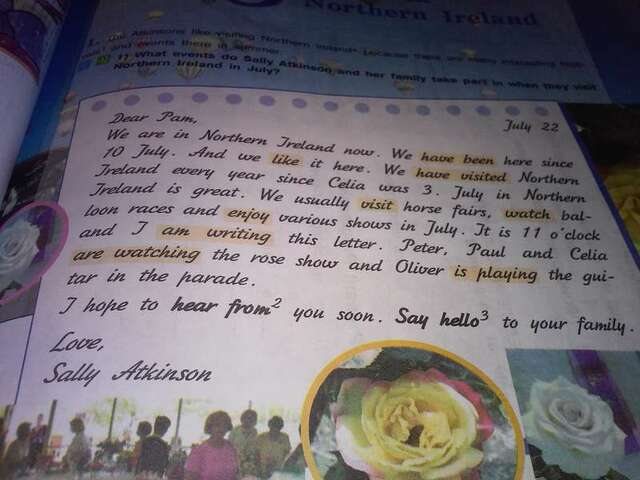 Northern Ireland
1. The Atkinsons like visiting Northern Ireland because there are many interesting
and events there in summer.
1) What events do Sally Atkinson and her family take part in when they visit
Northern Ireland in July?
Dear Pam,
July 22
We are in Northern Ireland now. We have been here since
10 July. And we like it here. We have visited Northern
Ireland every year since Celia was 3. July in Northern
Ireland is great. We usually visit horse fairs, watch bal-
loon races and enjoy various shows in July. It is 11 o'clock
and I am writing this letter. Peter, Paul and Celia
are watching the rose show and Oliver is playing the gui-
tar in the parade.
I hope to hear from² you soon. Say hello³ to your family.
Love,
Sally Atkinson